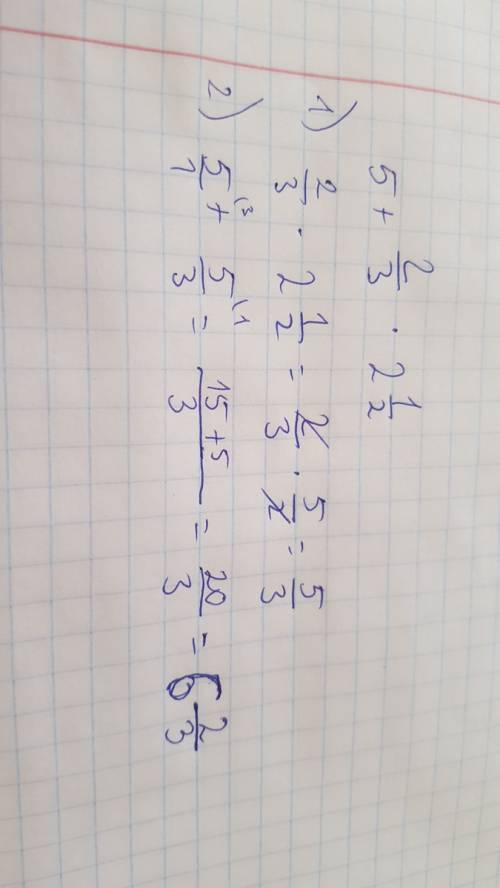 5 + 2/3 · 2 1/2
1) 2/3 · 2 1/2 = 2/3 · 5/2 = 5/3
2) 5/1 \3 + 5/3 \1 = 15+5/3 = 20/3 = 6 2/3